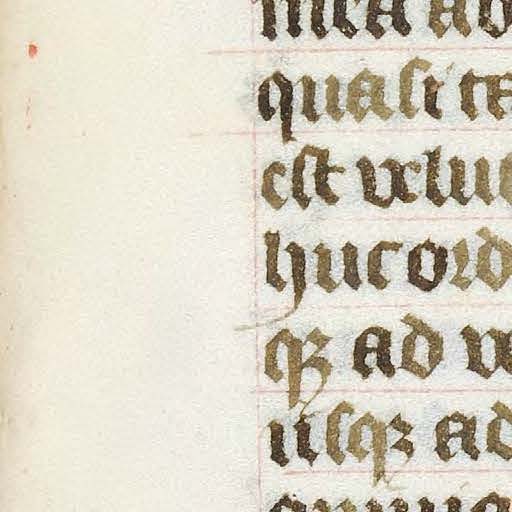 mea ad
quasi te
est uelut
huc ord
qꝫ ad ue
usqꝫ ad